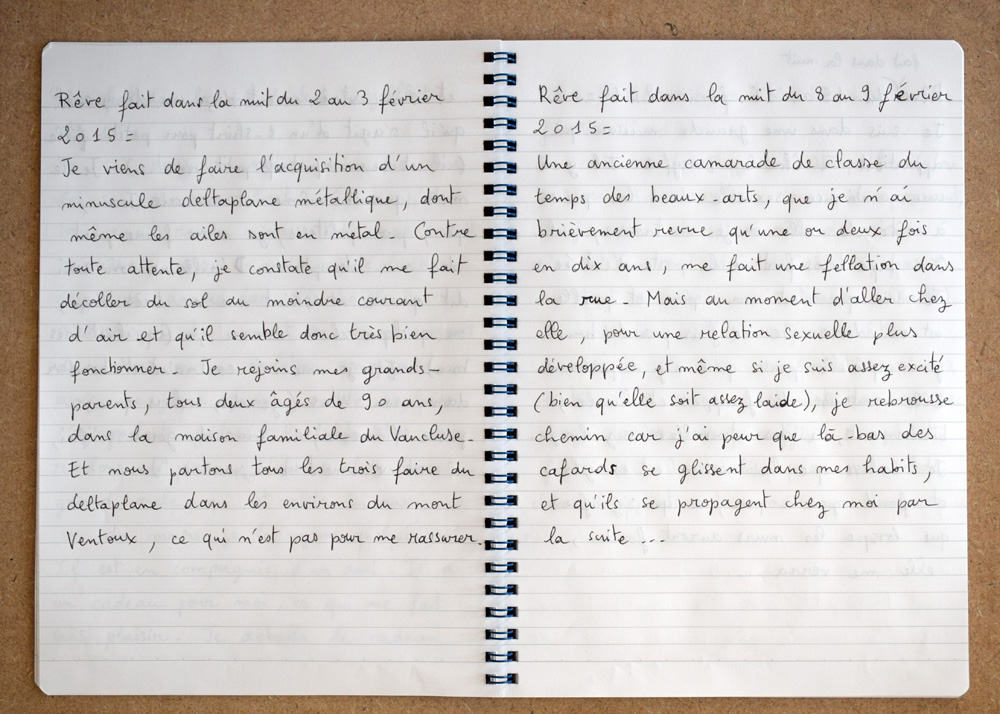 Rêve fait dans la nuit du 2 au 3 février
2015=
Je viens de faire l'acquisition d'un
minuscule deltaplane métallique, dont
même les ailes sont en métal. Contre
toute attente, je constate qu'il me fait
décoller du sol au moindre courant
d'air et qu'il semble donc très bien
fonctionner. Je rejoins mes grands-
parents, tous deux âgés de 90 ans,
dans la maison familiale du Vaucluse.
Et nous partons tous les trois faire du
deltaplane dans les environs du mont
Ventoux, ce qui n'est pas pour me rassurer.
Rêve fait dans la nuit du 8 au 9 février
2015=
Une ancienne camarade de classe du
temps des beaux-arts, que je n'ai
brièvement revue qu'une ou deux fois
en dix ans, me fait une fellation dans
la rue. Mais au moment d'aller chez
elle, pour une relation sexuelle plus
développée, et même si je suis assez excité
(bien qu'elle soit assez laide), je rebrousse
chemin car j'ai peur que là-bas des
cafards se glissent dans mes habits,
et qu'ils se propagent chez moi par
la suite ...